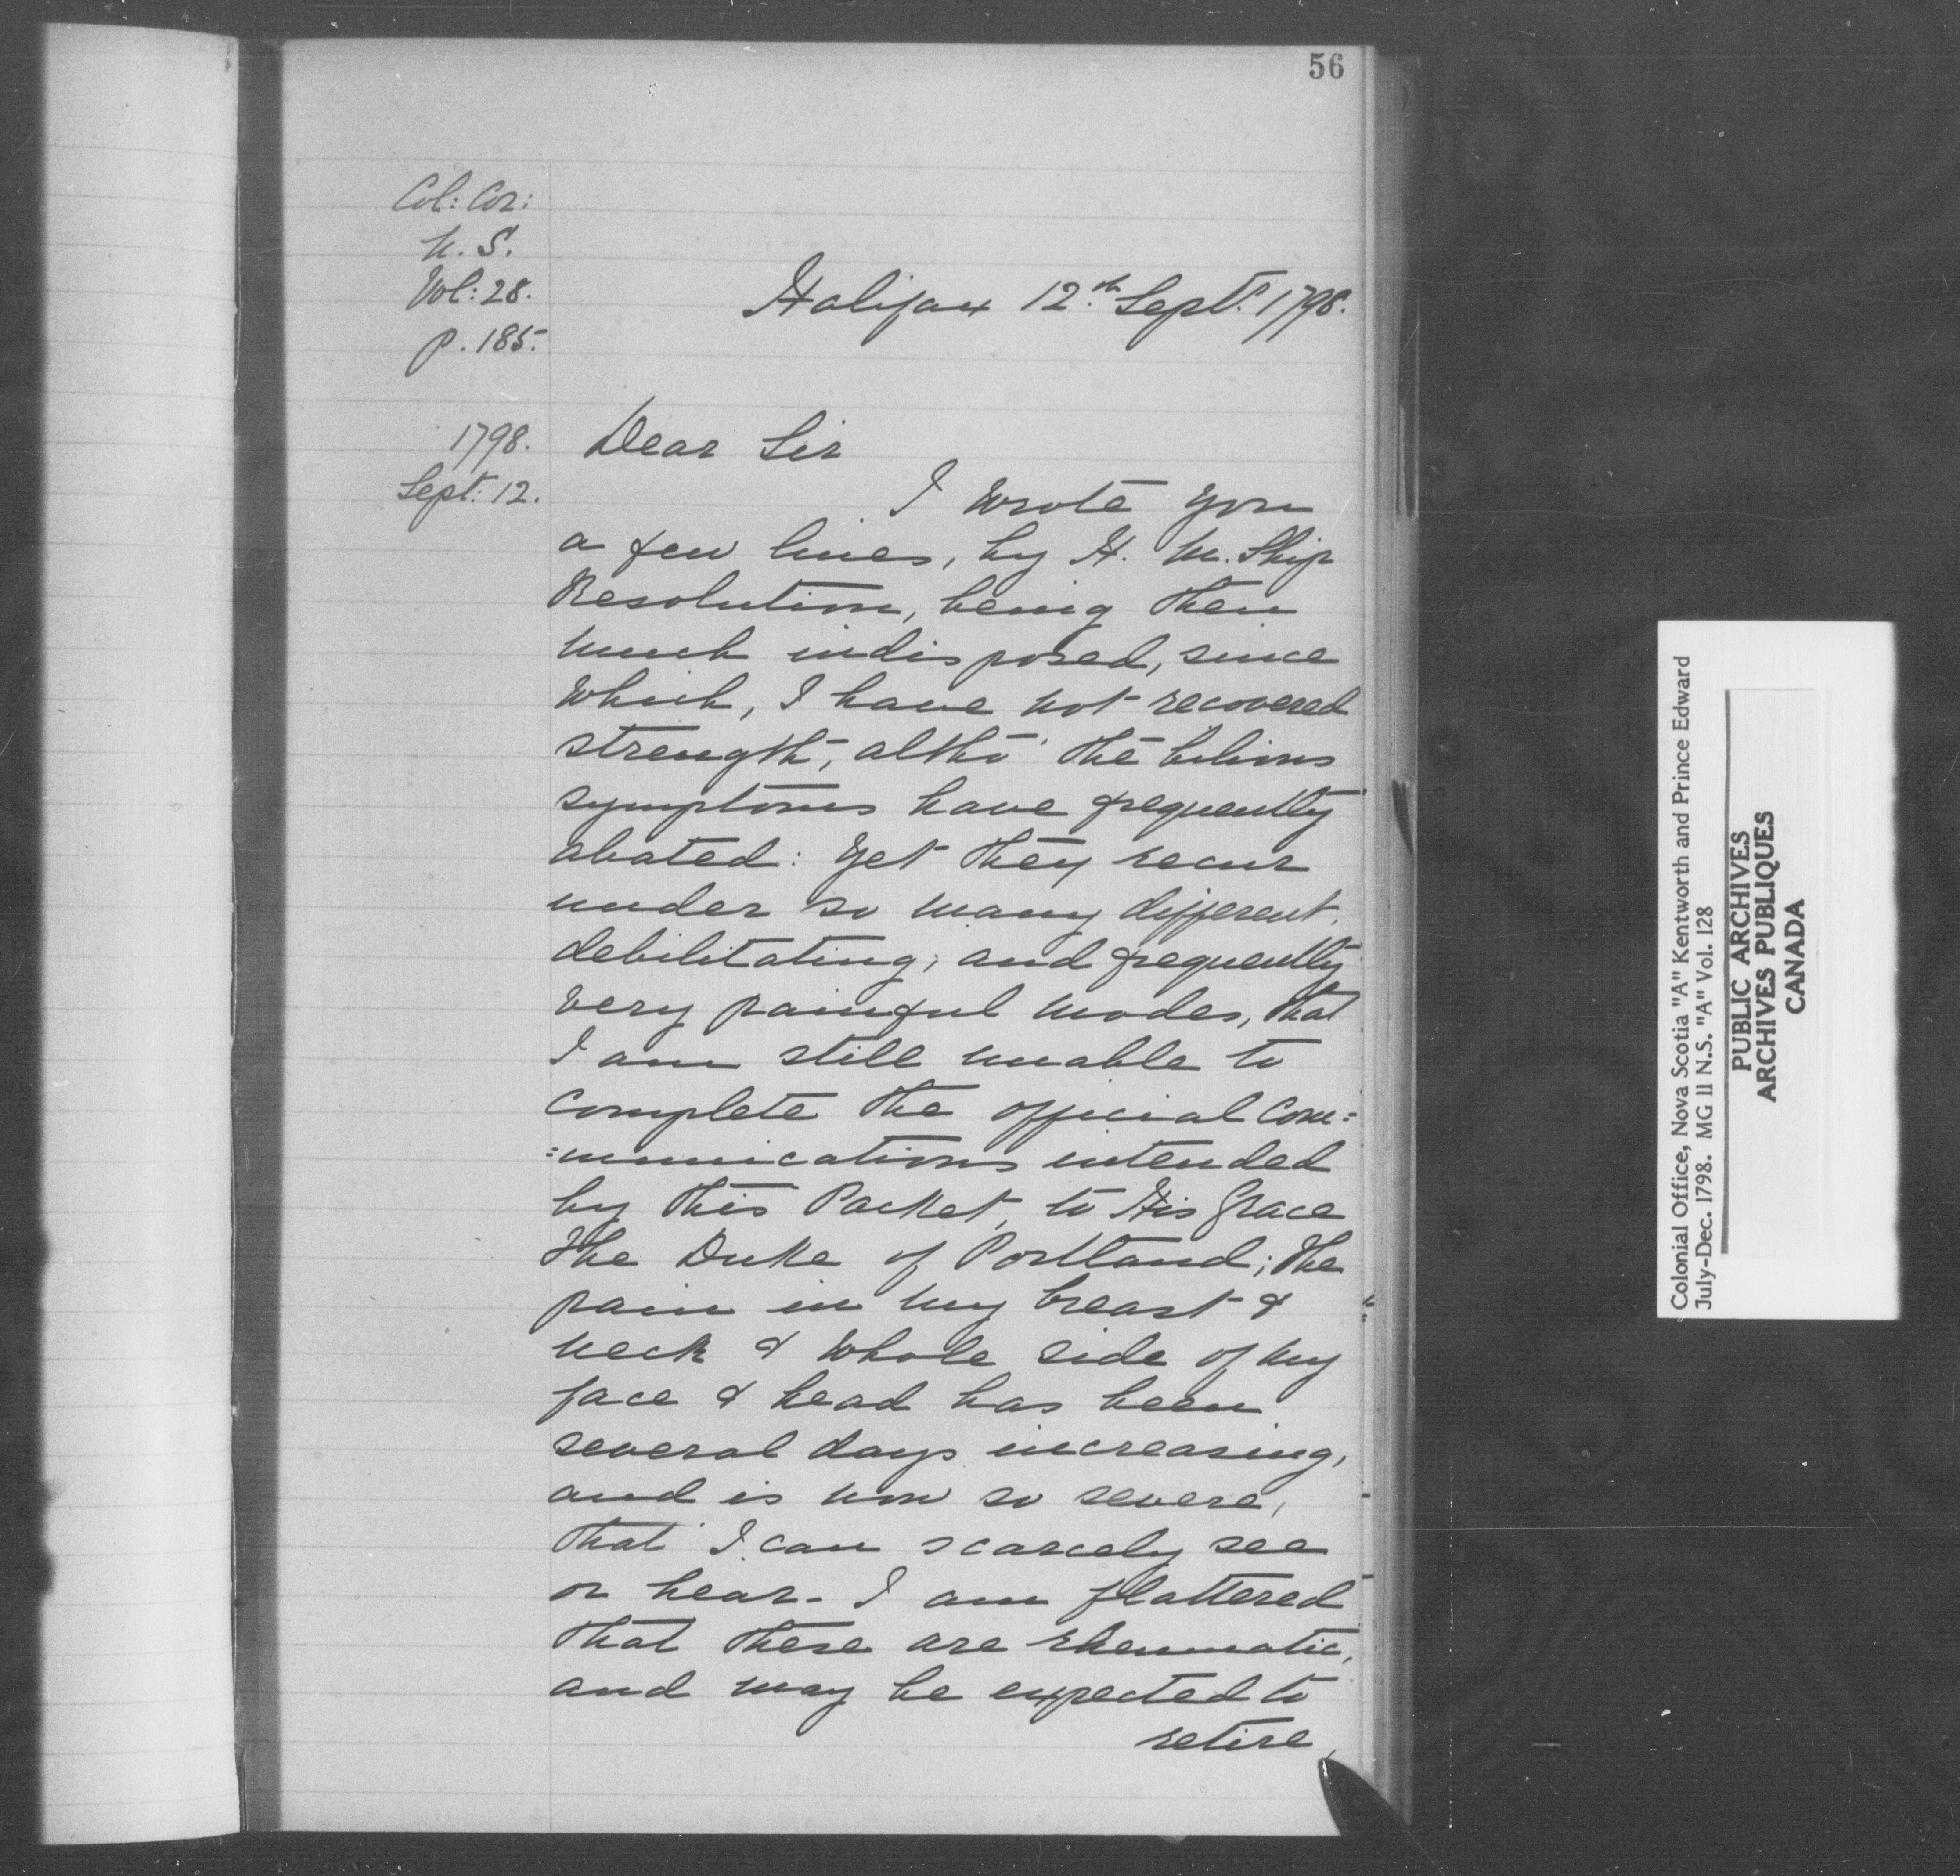 56
Col: Cor:
N. S.
Vol: 28.
p. 185.
Halifax 12.th Sept. 1798.
1798.
Sept: 12.
Dear Sir
I wrote you
a few lines, by H. M. Ship
Resolution, being then
much indisposed, since
which, I have not recovered
strength, altho' the bilious
symptoms have frequently
abated: yet they recur
under so many different,
debilitating, and frequently
very painful modes, that
I am still unable to
complete the official Com:
:munications intended
by this Packet, to His Grace
the Duke of Portland; the
pain in my breast &
neck & whole side of my
face & head has been
several days increasing,
and is now so severe,
that I can scarcely see
or hear. I am flattered
that these are rheumatic,
and may be expected to
retire,
Colonial Office, Nova Scotia "A" Kentworth and Prince Edward
July-Dec. 1798. MG II N.S. "A" Vol. 128
PUBLIC ARCHIVES
ARCHIVES PUBLIQUES
CANADA